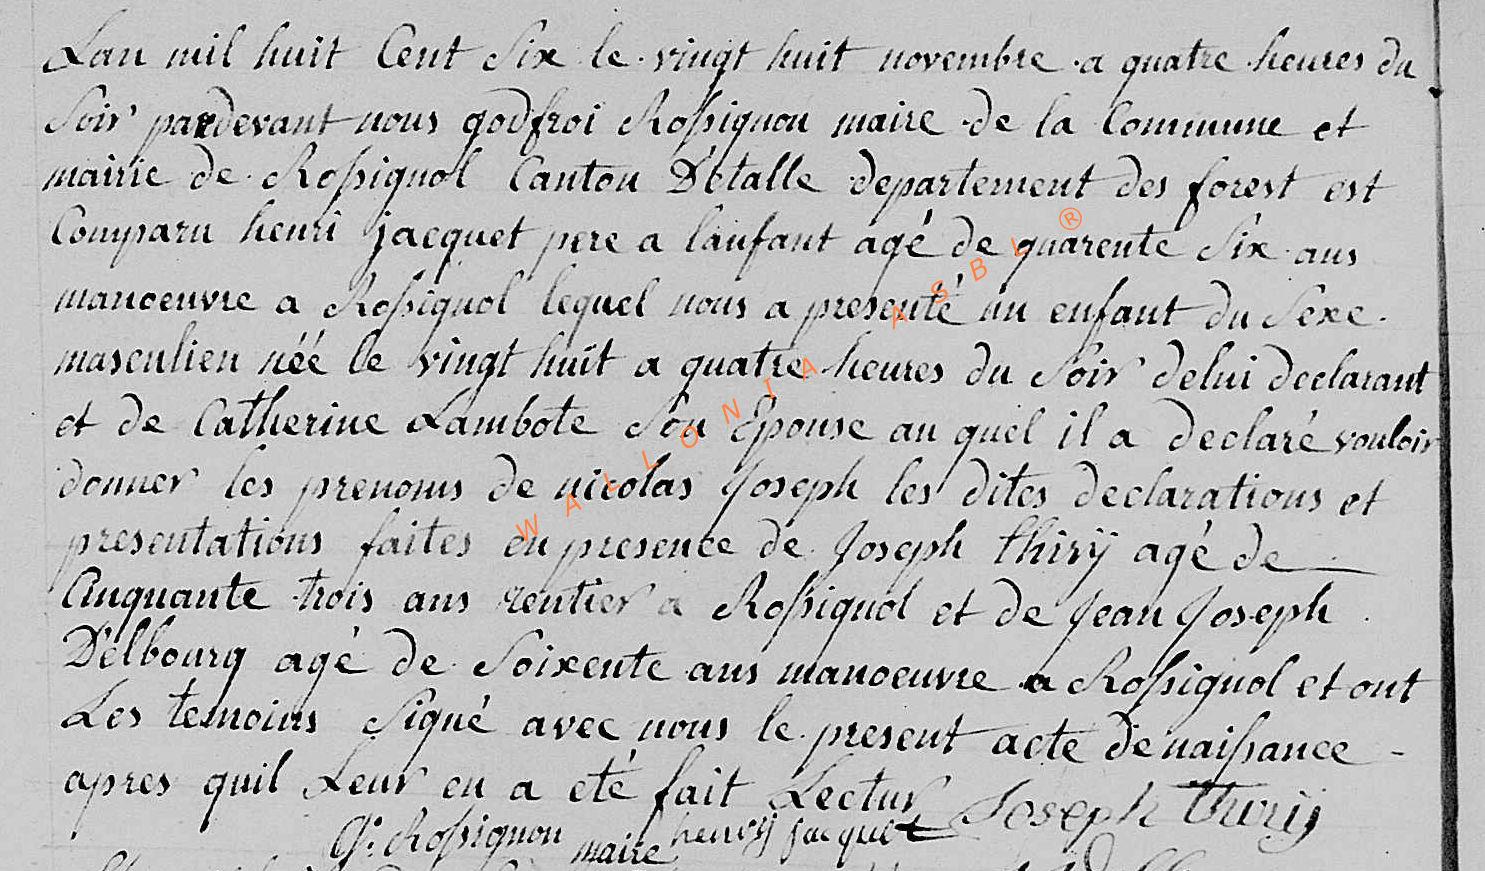 Lan mil huit Cent Six le vingt huit novembre a quatre heures du
Soir pardevant nous godfroi Rossignon maire de la Commune et
mairie de Rossignol Canton D'étalle departement des forest est
Comparu henri jacquet pere a lanfant agé de quarente Six ans
manoeuvre a Rossignol lequel nous a presenté un enfant du Sexe
masculien néé le vingt huit a quatre heures du Soir delui declarant
et de Catherine Lambote Son Epouse au quel il a declaré vouloir
donner les prenoms de nicolas Joseph les dites declarations et
presentations faites en presence de Joseph thirÿ agé de
Cinquante trois ans rentier a Rossignol et de Jean Joseph
Delbourg agé de Soixente ans manoeuvre a Rossignol et ont
Les temoins Signé avec nous le present acte de naissance -
apres quil Leur en a eté fait Lectur Joseph thirij
G: Rossignon maire henrÿ jacquet
WALLONIA ASBL ®